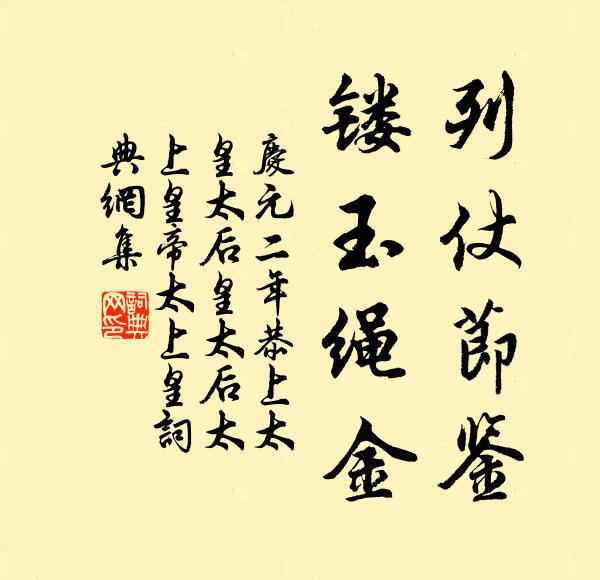 列仗莭鉴
镂玉绳金
慶元二年恭上太
皇太后皇太后太
上皇帝太上皇詞
典網集
詞典网印